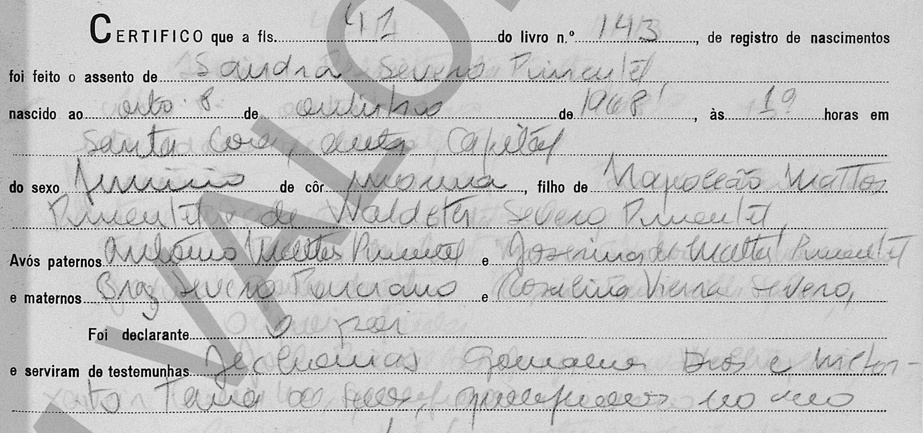 CERTIFICO que a fls. 41 do livro n.º 143, de registro de nascimentos
foi feito o assento de Sandra Severo Pimentel
nascido ao oito 8 de outubro de 1968, às 19 horas em
Santa Casa, desta Capital
do sexo feminino de côr morena, filho de Napoleão Mattos
Pimentel e de Waldeter Severo Pimentel
Avós paternos Antônio Mattos Pimentel e Joserina de Mattos Pimentel
e maternos Braz Severo e Roselina Vieira Severo,
Foi declarante o pai
e serviram de testemunhas Gonçalves Dias e
no
VALO